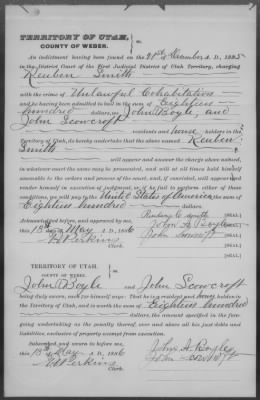 TERRITORY OF UTAH,
COUNTY OF WEBER.
An indictment having been found on the 21st of December A. D., 1885
in the District Court of the First Judicial District of Utah Territory, charging
Reuben Smith
with the crime of Unlawful Cohabitation
and he having been admitted to bail in the sum of Eighteen
hundred dollars, we John Boyle, and
John Scowcroft
residents and house holders in the
Territory of Utah, do hereby undertake that the above named Reuben
Smith
will appear and answer the charge above named,
in whatever court the same may be prosecuted, and will at all times hold himself
amenable to the orders and process of the court, and if convicted, will appear
render himself in execution of judgment, or if he fail to perform either of these
conditions, we will pay to the United States of America the sum of
Eighteen hundred dollars.
Acknowledged before, and approved by me,
this 13th May A. D., 1886
Clerk.
John A. Boyle [SEAL.]
John Scowcroft [SEAL.]
[SEAL.]
TERRITORY OF UTAH,
COUNTY OF WEBER.
John Boyle and John Scowcroft
being duly sworn, each for himself says: That he is a resident and house holder, within the
Territory of Utah, and is worth the sum of Eighteen hundred
dollars, the amount specified in the fore-
going undertaking as the penalty thereof, over and above all his just debts and
liabilities, exclusive of property exempt from execution.
Subscribed and sworn to before me
this 13th May A. D., 1886
Clerk.
John A. Boyle
John Scowcroft